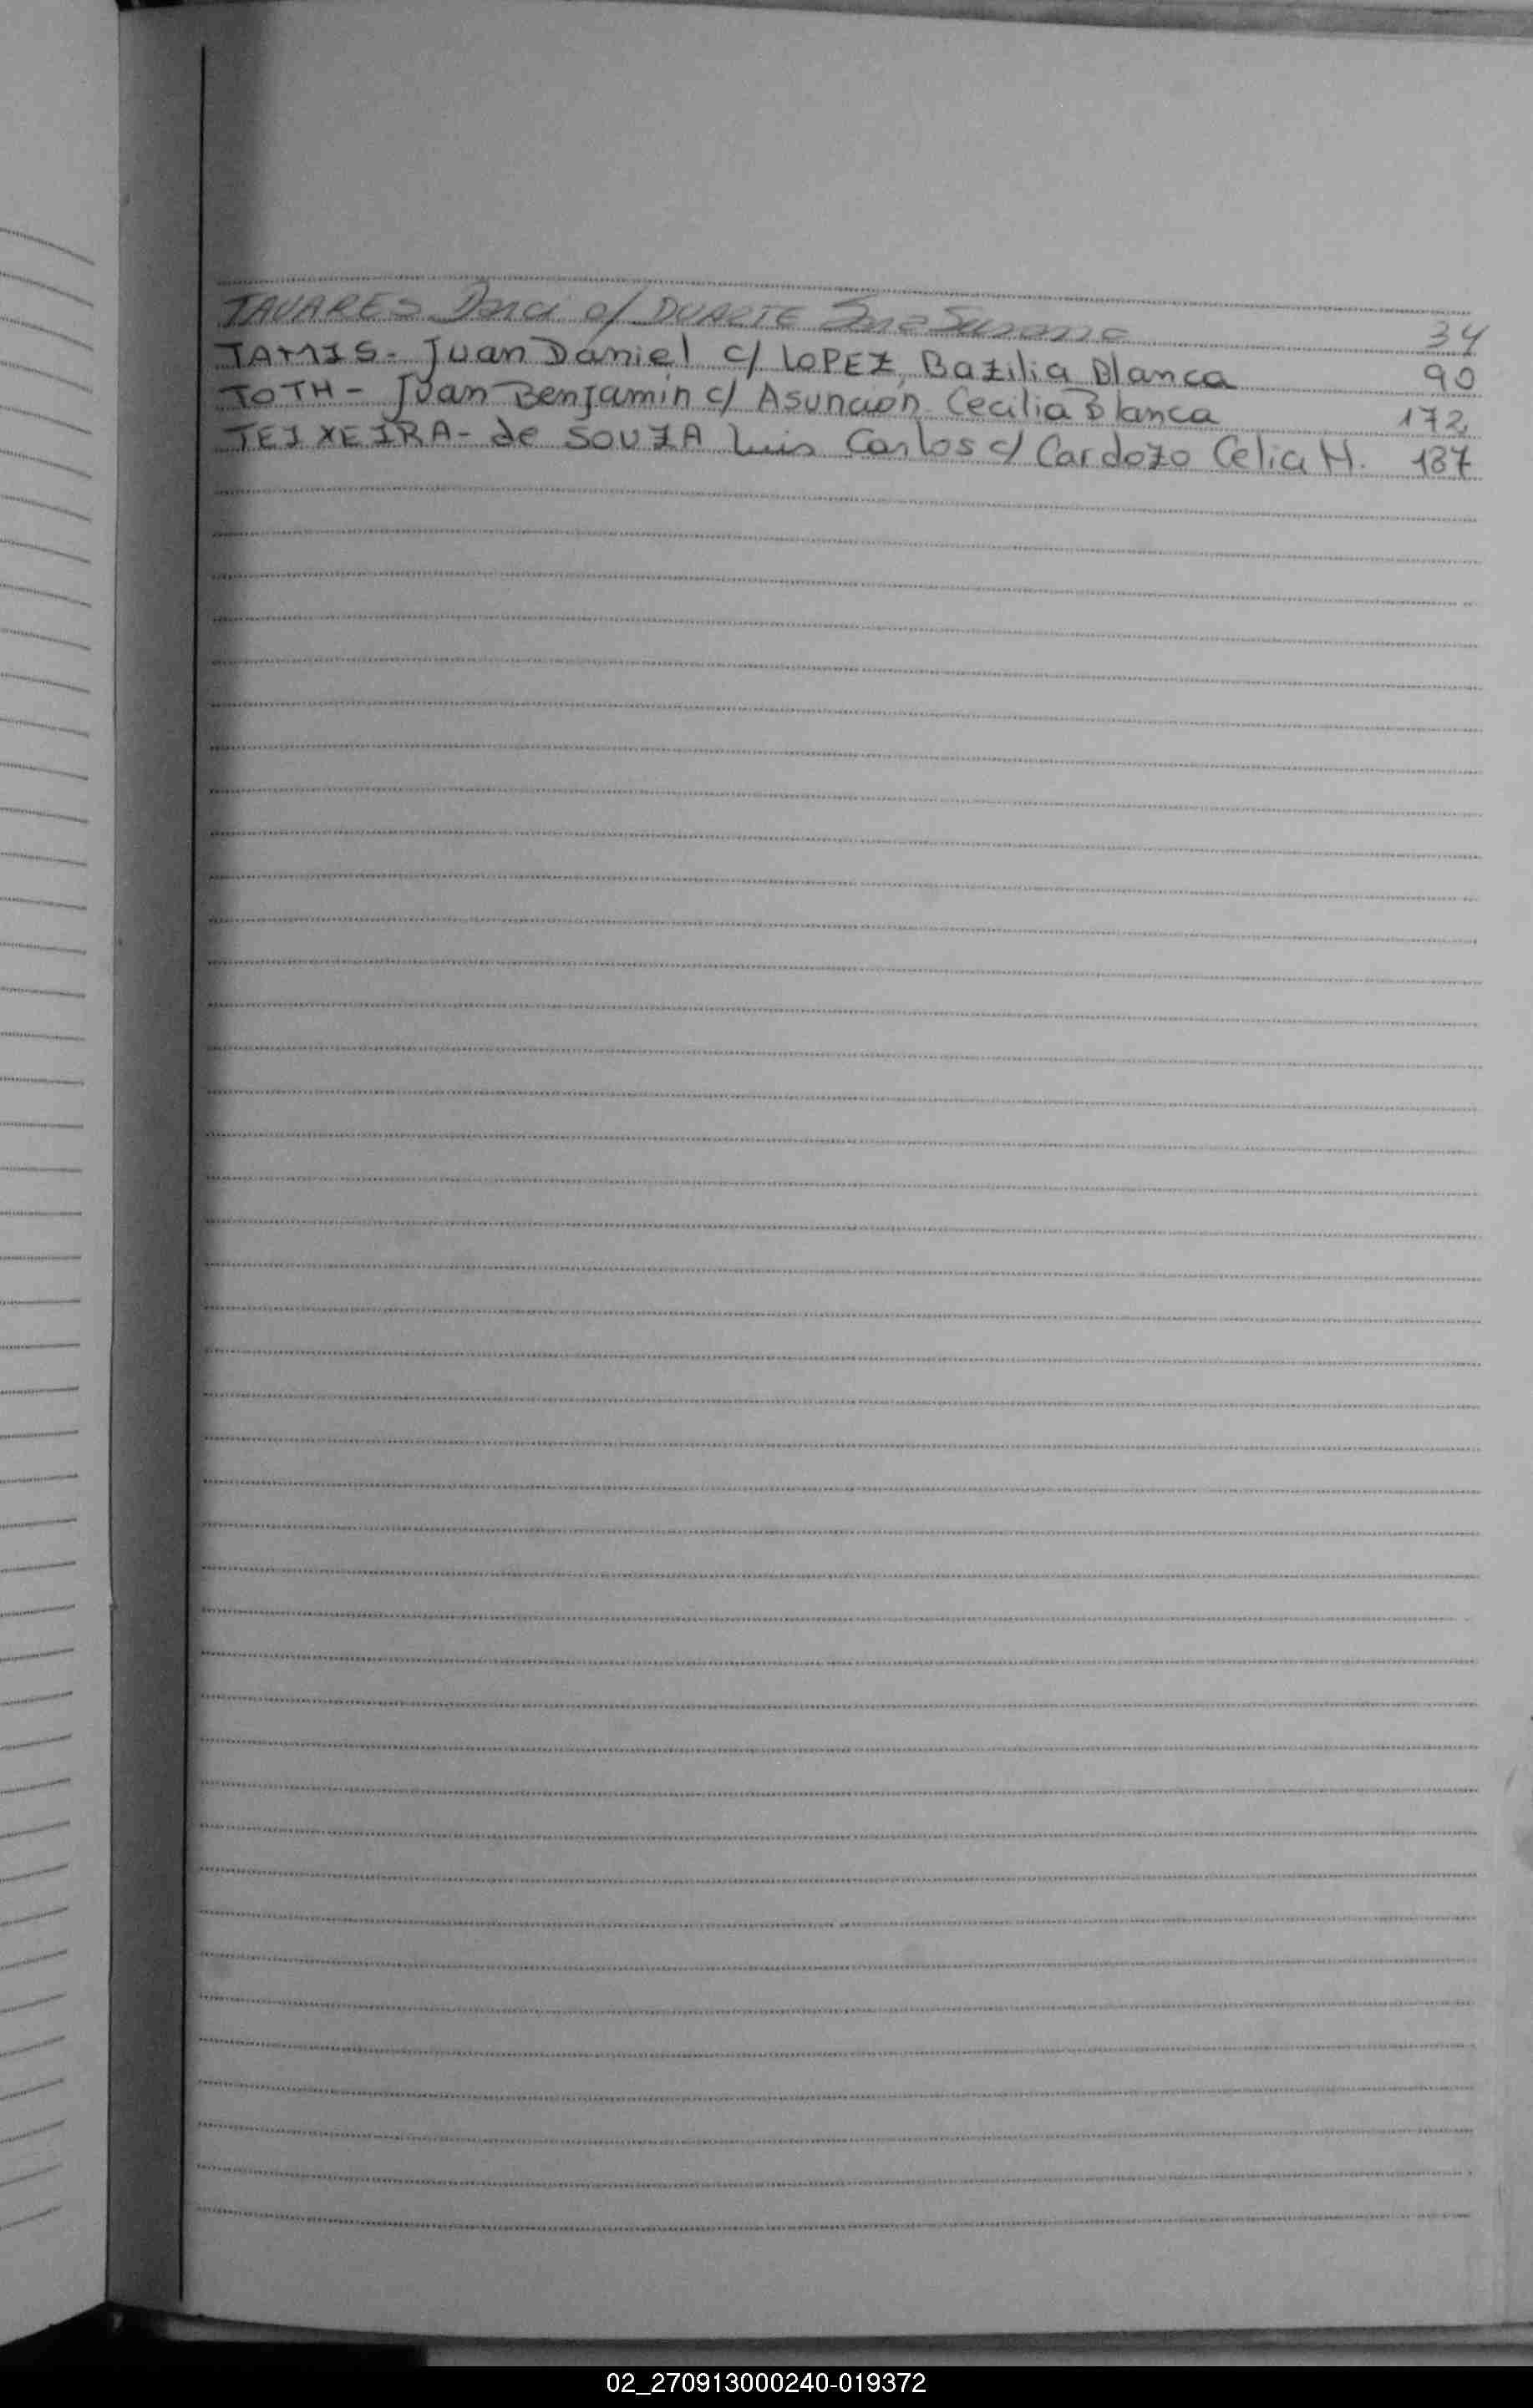 TAVARES Darci c/ DUARTE 34
TAMIS - Juan Daniel c/ LOPEZ, Bazilia Blanca 90
TOTH - Juan Benjamin c/ Asuncion Cecilia Blanca 172
TEIXEIRA - de SOUZA Luis Carlos c/ Cardozo Celia H. 187
02_270913000240-019372